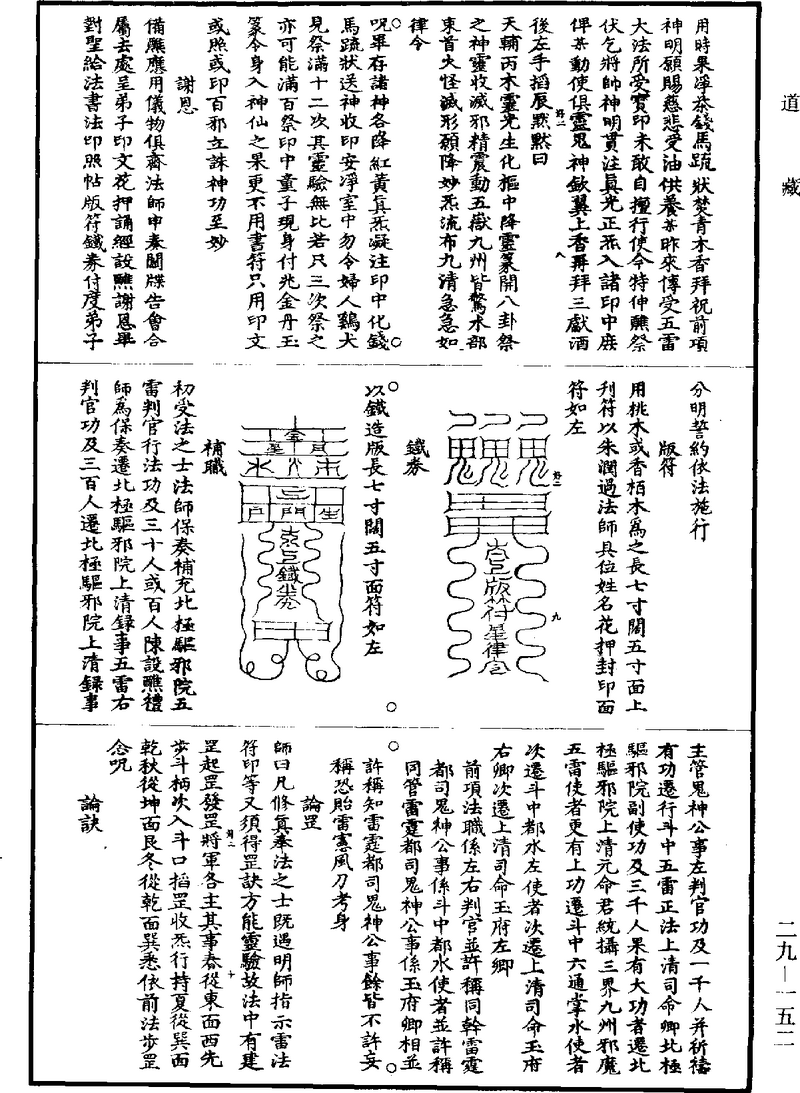 道藏
用時果淨茶錢馬䟽狀焚青木香拜祝前項
神明願賜慈悲受油供養某昨來傳受五雷
大法所受寶印未敢自擅行使今特伸醮祭
伏乞將帥神明貫注真光正炁入諸印中庻
俾某動使俱靈鬼神欽翼上香再拜三獻酒
後左手搯辰默默曰
天輔丙木靈光生化樞中降靈篆開八卦祭
之神靈收滅邪精震動五嶽九州皆驚木部
束首火怪滅形願降妙炁流布九清急急如
律令
呪畢存諸神各降紅黃真炁凝注印中化錢
馬䟽狀送神收印安淨室中勿令婦人鷄犬
見祭滿十二次其靈驗無比若只三次祭之
亦可能滿百祭印中童子現身付兆金丹玉
篆令身入神仙之果更不用書符只用印文
或照或印百邪立誅神功至妙
謝恩
備醮應用儀物俱齋法師申奏關牒告會合
屬去處呈弟子印文花押誦經設醮謝恩畢
對聖給法書法印照帖版符鐵券付度弟子
分明誓約依法施行
版符
用桃木或香栢木爲之長七寸闊五寸面上
刋符以朱潤過法師具位姓名花押封印面
符如左
鐵券
以鐵造版長七寸闊五寸面符如左
補職
初受法之士法師保奏補充北極驅邪院五
雷判官行法功及三十人或百人陳設醮禮
師爲保奏遷北極驅邪院上清録事五雷右
判官功及三百人遷北極驅邪院上清録事
主管鬼神公事左判官功及一千人并祈禱
有功遷行斗中五雷正法上清司命卿北極
驅邪院副使功及三千人果有大功者遷北
極驅邪院上清元命君統攝三界九州邪魔
五雷使者更有上功遷斗中六通掌水使者
次遷斗中都水左使者次遷上清司命玉府
右卿次遷上清司命玉府左卿
前項法職係左右判官並許稱同幹雷霆
都司鬼神公事係斗中都水使者並許稱
同管雷霆都司鬼神公事係玉府卿相並
許稱知雷霆都司鬼神公事餘皆不許妄
稱恐貽雷憲風刀考身
論罡
師曰凡修真奉法之士既遇明師指示雷法
符印等又須得罡訣方能靈驗故法中有建
罡起罡發罡將軍各主其事春從東面西先
步斗柄次入斗口搯罡收炁行持夏從巽面
乾秋從坤面艮冬從乾面巽悉依前法步罡
念呪
論訣
二九—一五二